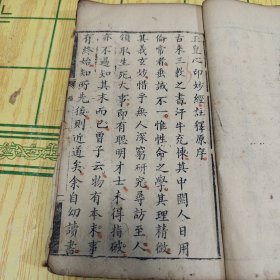 玉皇心印妙經註釋原序
古來三教之書汗牛充棟其中闡人日用
倫常者卷誠不一惟性命之學其理精微
其義玄妙惜乎無人深窮研究尋訪至人
領取生死大事即有聰明才士不得指破
亦不過知其末而已曾子云物有本末事
有終始知所先後則近道矣余自幼讀書